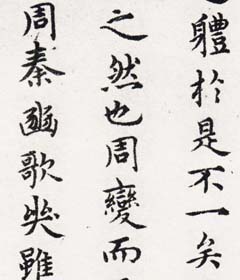 體於是不一矣
之然也周變而
周秦豳歌雖